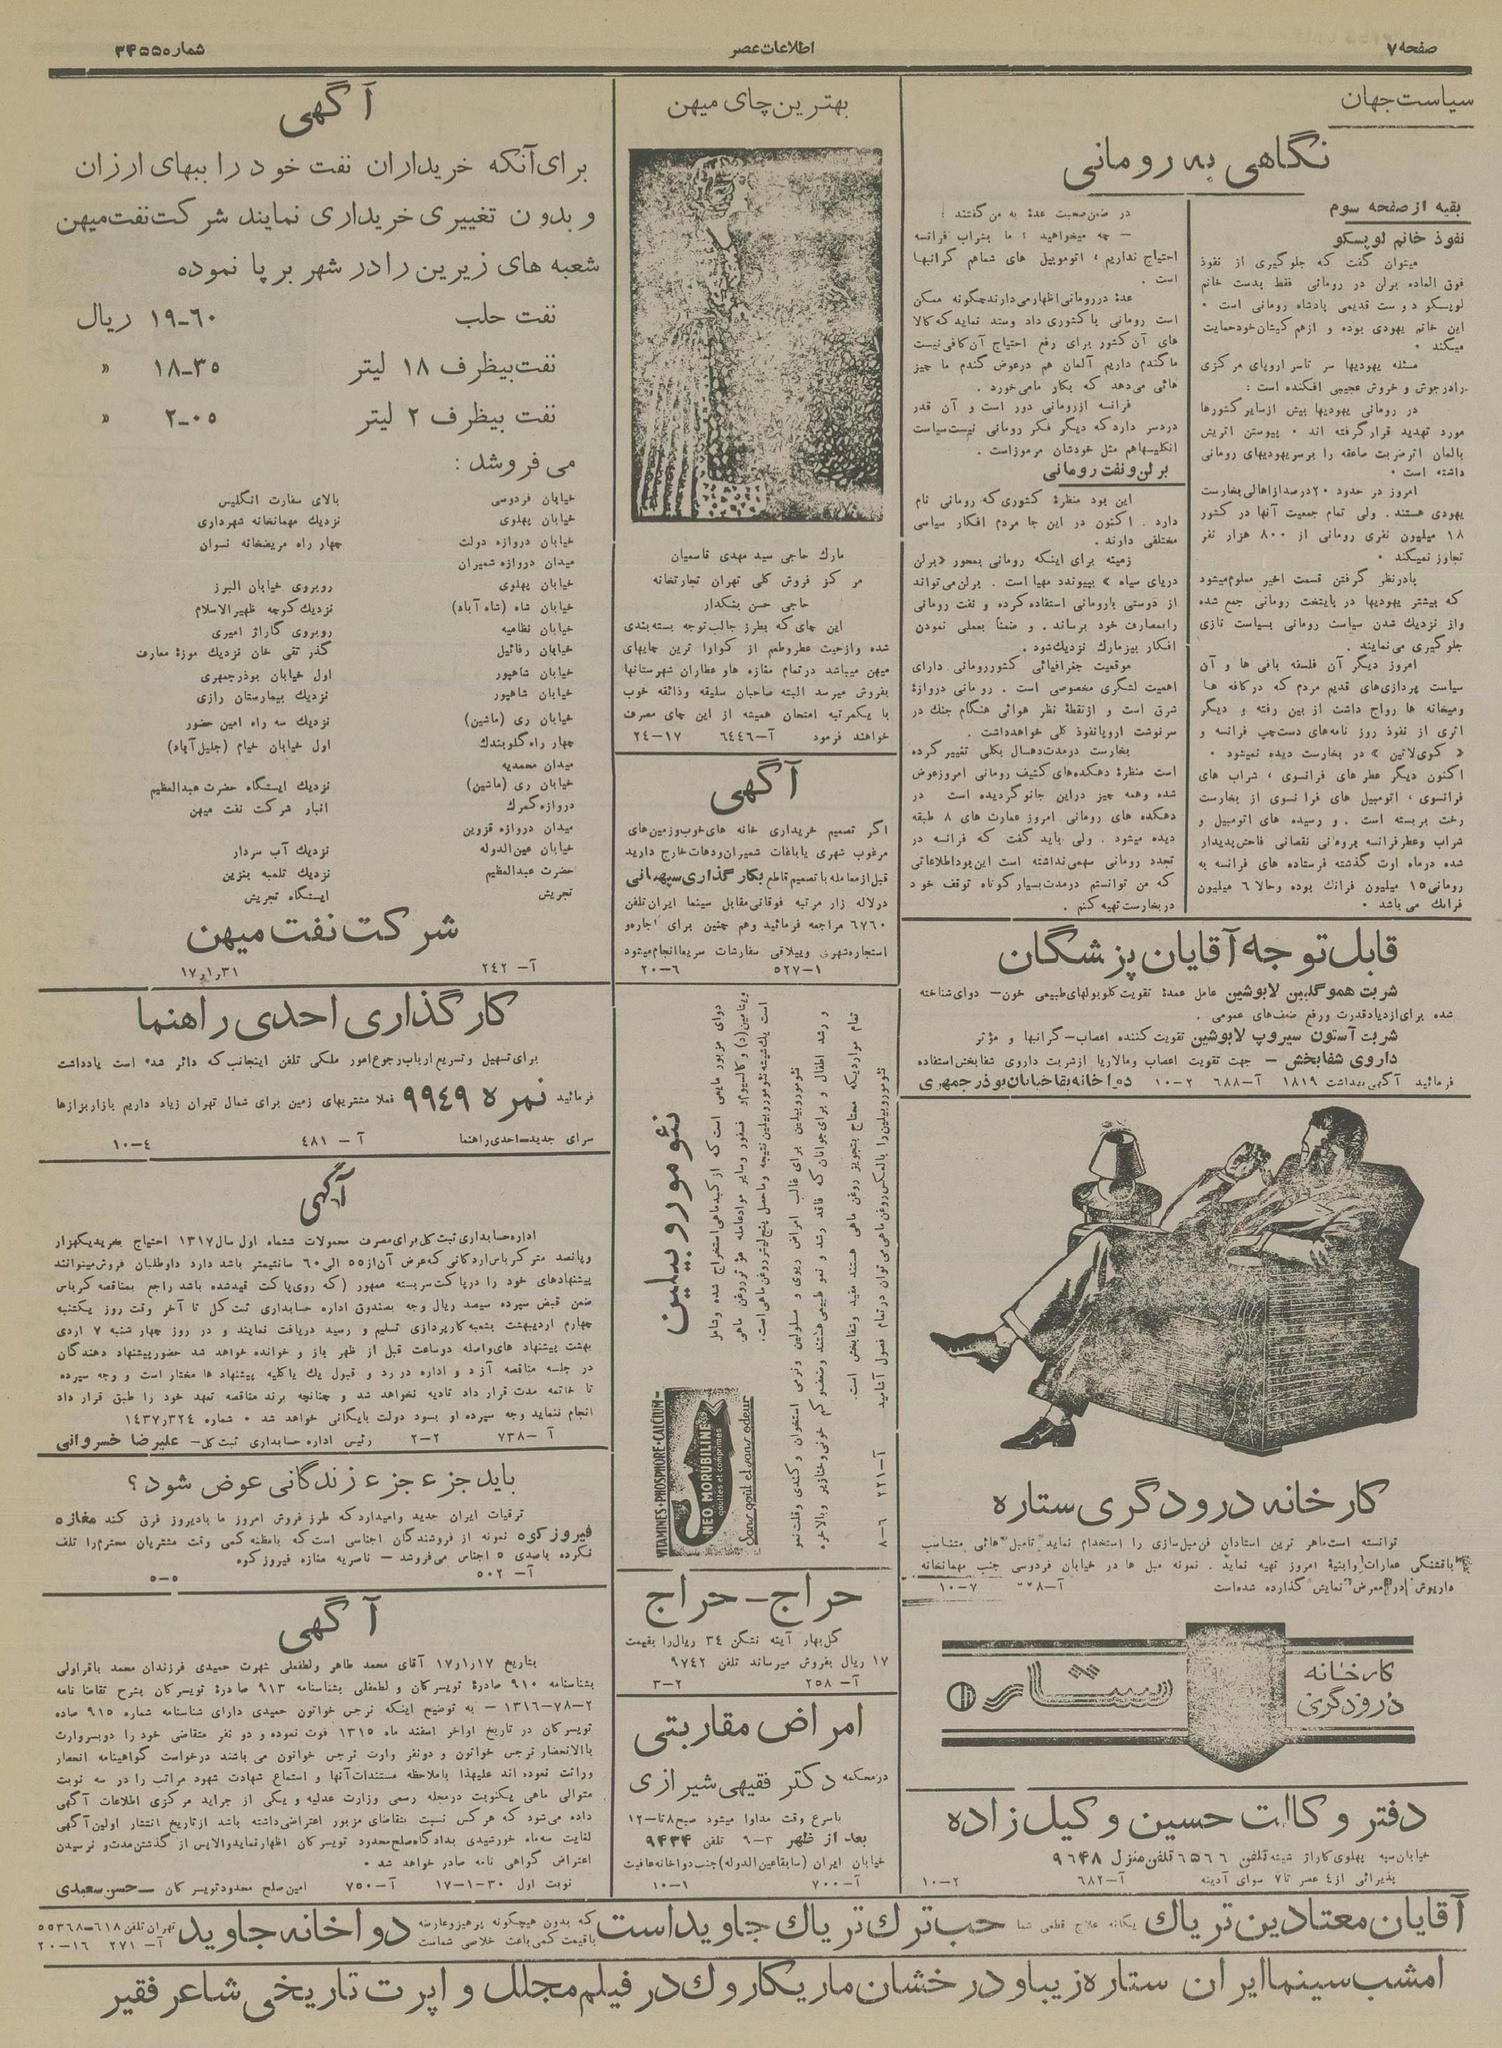 صفحه ۷
اطلاعات عصر
شماره ۳۴۵۵۰
سیاست جهان
نگاهی به رومانی
بقیه از صفحه سوم
نفوذ خانم لوپسکو
میتوان گفت که جلوگیری از نفوذ
فوق العاده برلن در رومانی فقط بدست خانم
لوپسکو دوست قدیمی پادشاه رومانی است ۰
این خانم یهودی بوده و از هم کیشان خود حمایت
میکند ۰
مسئله یهودیها سر تاسر اروپای مرکزی
را در جوش و خروش عجیبی افکنده است :
در رومانی یهودیها بیش از سایر کشورها
مورد تهدید قرار گرفته اند ۰ پیوستن اتریش
بالمان اثر ضربت صاعقه را بر سر یهودیهای رومانی
داشته است ۰
امروز در حدود ۲۰ درصد از اهالی بخارست
یهودی هستند . ولی تمام جمعیت آنها در کشور
۱۸ میلیون نفری رومانی از ۸۰۰ هزار نفر
تجاوز نمیکند ۰
بادر نظر گرفتن قسمت اخیر معلوم میشود
که بیشتر یهودیها در پایتخت رومانی جمع شده
و از نزدیک شدن سیاست رومانی بسیاست نازی
جلوگیری می نمایند .
امروز دیگر آن فلسفه بافی ها و آن
سیاست پردازی های قدیم مردم که در کافه ها
و میخانه ها رواج داشت از بین رفته و دیگر
اثری از نفوذ روز نامه های دست چپ فرانسه و
« کوی لاتین » در بخارست دیده نمیشود ۰
اکنون دیگر عطر های فرانسوی ، شراب های
فرانسوی ، اتومبیل های فرانسوی از بخارست
رخت بر بسته است . و رسیده های اتومبیل و
شراب وعطر فرانسه برومانی نقصانی فاحش پدیدار
شده در ماه اوت گذشته فرستاده های فرانسه به
رومانی ۱۵ میلیون فرانک بوده وحالا ۶ میلیون
فرانک می باشد ۰
در ضمن صحبت عدهٔ به من گفتند :
— چه میخواهید ؛ ما بشراب فرانسه
احتیاج نداریم ، اتوموبیل های شماهم گرانبها
است .
عدهٔ در رومانی اظهار می دارند چگونه ممکن
است رومانی با کشوری داد وستد نماید که کالا
های آن کشور برای رفع احتیاج آن کافی نیست
ما گندم داریم آلمان هم در عوض گندم ما چیز
هائی می دهد که بکار ما می خورد .
فرانسه از رومانی دور است و آن قدر
دردسر دارد که دیگر فکر رومانی نیست سیاست
انگلیسها هم مثل خودشان مرموز است .
برلن و نفت رومانی
این بود منظرهٔ کشوری که رومانی نام
دارد . اکنون در این جا مردم افکار سیاسی
مختلفی دارند .
زمینه برای اینکه رومانی بمحور «برلن
دریای سیاه » بپیوندد مهیا است . برلن می تواند
از دوستی با رومانی استفاده کرده و نفت رومانی
را بمصارف خود برساند . و ضمناً بعملی نمودن
افکار بیزمارک نزدیک شود .
موقعیت جغرافیائی کشور رومانی دارای
اهمیت لشگری مخصوصی است . رومانی دروازهٔ
شرق است و از نقطهٔ نظر هوائی هنگام جنک در
سرنوشت اروپا نفوذ کلی خواهد داشت .
بخارست در مدت ده سال بکلی تغییر کرده
است منظرهٔ دهکده های کثیف رومانی امروز عوض
شده وهمه چیز در این جا نو گردیده است در
دهکده های رومانی امروز عمارت های ۸ طبقه
دیده میشود . ولی باید گفت که فرانسه در
تجدد رومانی سهمی نداشته است این بود اطلاعاتی
که من توانستم در مدت بسیار کوتاه توقف خود
در بخارست تهیه کنم .
قابل توجه آقایان پزشگان
شربت هموگلبین لابوشین عامل عمدهٔ تقویت گلوبولهای طبیعی خون — دوای شناخته
شده برای ازدیاد قدرت ورفع ضعف های عمومی .
شربت آستون سیروپ لابوشین تقویت کننده اعصاب — گرانبها و مؤثر
داروی شفابخش — جهت تقویت اعصاب ومالاریا از شربت داروی شفابخش استفاده
فرمائید آگهی بهداشت ۱۸۱۹ آ-۶۸۸ ۲-۱۰ دواخانه بقا خیابان بوذرجمهری
کارخانه درودگری ستاره
توانسته است ماهر ترین استادان فن مبل سازی را استخدام نماید تا مبل هائی متناسب
با قشنگی عمارات وابنیهٔ امروز تهیه نماید . نمونه مبل ها در خیابان فردوسی جنب مهمانخانه
داریوش در معرض نمایش گذارده شده است ۷-۱۰
کارخانه
درودگری
ستاره
دفتر وکالت حسین وکیل زاده
خیابان سپه پهلوی کاراژ شیشه تلفن ۶۵۶۶ تلفن منزل ۹۶۴۸
پذیرائی از ۴ عصر تا ۷ سوای آدینه آ-۶۸۲ ۲-۱۰
بهترین چای میهن
مارک حاجی سید مهدی قاسمیان
مرکز فروش کلی تهران تجارتخانه
حاجی حسن بنکدار
این چای که بطرز جالب توجه بسته بندی
شده و از حیث عطر وطعم از گوارا ترین چایهای
میهن میباشد در تمام مغازه ها و عطاران شهرستانها
بفروش میرسد البته صاحبان سلیقه وذائقه خوب
با یکمرتبه امتحان همیشه از این چای مصرف
خواهند فرمود آ-۶۴۴۶ ۱۷-۲۴
آگهی
اگر تصمیم خریداری خانه های خوب و زمین های
مرغوب شهری یا باغات شمیران و دهات خارج دارید
قبل از معامله با تصمیم قاطع بکار گذاری سپهانی
در لاله زار مرتبه فوقانی مقابل سینما ایران تلفن
۶۷۶۰ مراجعه فرمائید وهم چنین برای اجاره و
استجاره شهری وییلاقی سفارشات سریعا انجام میشود
۵۲۷-۱ ۶-۲۰
نئوموروبیلین
دوای مزبور مایعی است که از کبد ماهی استخراج شده و شامل
ویتامین (د) و کالسیوم و فسفور وسایر مواد عامله مؤثر روغن ماهی
است یک شیشه نئوموروبیلین نتیجه و ماحصل پنج لیتر روغن ماهی است.
نئوموروبیلین برای غالب امراض ریوی و مسلولین ونرمی استخوان و کندی وقلت نمو
و رشد اطفال و برای جوانان که فاقد رشد و نمو طبیعی هستند وضعف و کم خونی وخنازیر وبالاخره
تمام مواردیکه محتاج بتجویز روغن ماهی هستند مفید وشفابخش است.
نئوموروبیلین را بالعکس روغن ماهی می توان در تمام فصول آشامید آ-۲۲۱ ۶-۸
VITAMINES+PHOSPHORE+CALCIUM=
NEO MORUBILINE
gouttes et comprimés
Sans goût et sans odeur
حراج - حراج
گل بهار آینه نشگن ۳۴ ریال را بقیمت
۱۷ ریال بفروش میرساند تلفن ۹۷۴۲
آ-۲۵۸ ۲-۳
امراض مقاربتی
در محکمه دکتر فقیهی شیرازی
با سرع وقت مداوا میشود صبح ۸ تا-۱۲
بعد از ظهر ۳-۶ تلفن ۹۴۳۴
خیابان ایران (سابقا عین الدوله) جنب دواخانه عافیت
آ-۷۰۰ ۱-۱۰
آگهی
برای آنکه خریداران نفت خود را ببهای ارزان
و بدون تغییری خریداری نمایند شرکت نفت میهن
شعبه های زیرین را در شهر بر پا نموده
نفت حلب ۱۹-۶۰ ریال
نفت بیظرف ۱۸ لیتر ۱۸-۳۵ «
نفت بیظرف ۲ لیتر ۲-۰۵ «
می فروشد :
خیابان فردوسی بالای سفارت انگلیس
خیابان پهلوی نزدیک مهمانخانه شهرداری
خیابان دروازه دولت چهار راه مریضخانه نسوان
میدان دروازه شمیران
خیابان پهلوی روبروی خیابان البرز
خیابان شاه (شاه آباد) نزدیک کوچه ظهیر الاسلام
خیابان نظامیه روبروی گاراژ امیری
خیابان رفائیل گذر تقی خان نزدیک موزهٔ معارف
خیابان شاهپور اول خیابان بوذرجمهری
خیابان شاهپور نزدیک بیمارستان رازی
خیابان ری (ماشین) نزدیک سه راه امین حضور
چهار راه گلوبندک اول خیابان خیام (جلیل آباد)
میدان محمدیه
خیابان ری (ماشین) نزدیک ایستگاه حضرت عبدالعظیم
دروازه گمرک انبار شرکت نفت میهن
میدان دروازه قزوین
خیابان عین الدوله نزدیک آب سردار
حضرت عبدالعظیم نزدیک تلمبه بنزین
تجریش ایستگاه تجریش
شرکت نفت میهن
آ-۲۴۲ ۱۷ر۱ر۳۱
کارگذاری احدی راهنما
برای تسهیل و تسریع ارباب رجوع امور ملکی تلفن اینجانب که دائر شده است یادداشت
فرمائید نمره ۹۹۴۹ فعلا مشتریهای زمین برای شمال تهران زیاد داریم بازار بزازها
سرای جدید-احدی راهنما آ-۴۸۱ ۴-۱۰
آگهی
اداره حسابداری ثبت کل برای مصرف محمولات ششماه اول سال ۱۳۱۷ احتیاج بخرید یکهزار
وپانصد متر کرباس اردکانی که عرض آن از ۵۵ الی ۶۰ سانتیمتر باشد دارد داوطلبان فروش میتوانند
پیشنهادهای خود را در پاکت سربسته ممهور (که روی پاکت قید شده باشد راجع بمناقصه کرباس
ضمن قبض سپرده سیصد ریال وجه بصندوق اداره حسابداری ثبت کل تا آخر وقت روز یکشنبه
چهارم اردیبهشت بشعبه کارپردازی تسلیم و رسید دریافت نمایند و در روز چهار شنبه ۷ اردی
بهشت پیشنهاد های واصله دو ساعت قبل از ظهر باز و خوانده خواهد شد حضور پیشنهاد دهندگان
در جلسه مناقصه آزاد و اداره در رد و قبول یک یا کلیه پیشنهاد ها مختار است و وجه سپرده
تا خاتمه مدت قرار داد تادیه نخواهد شد و چنانچه برنده مناقصه تعهد خود را طبق قرار داد
انجام ننماید وجه سپرده او بسود دولت بایگانی خواهد شد ۰ شماره ۱۴۳۷ر۳۲۴
آ-۷۳۸ ۲-۲ رئیس اداره حسابداری ثبت کل- علیرضا خسروانی
باید جزء جزء زندگانی عوض شود؟
ترقیات ایران جدید وامیدارد که طرز فروش امروز ما با دیروز فرق کند مغازه
فیروز کوه نمونه از فروشندگان اجناسی است که بامظنه کمی وقت مشتریان محترم را تلف
نکرده باصدی ۵ اجناس می فروشد — ناصریه مغازه فیروز کوه
آ-۵۰۲ ۵-۵
آگهی
بتاریخ ۱۷ر۱ر۱۷ آقای محمد طاهر ولطفعلی شهرت حمیدی فرزندان محمد باقر اولی
بشناسنامه ۹۱۰ صادرهٔ تویسرکان و لطفعلی بشناسنامه ۹۱۳ صادرهٔ تویسرکان بشرح تقاضا نامه
۲-۷۸-۱۳۱۶ — به توضیح اینکه نرجس خواتون حمیدی دارای شناسنامه شماره ۹۱۵ صاده
تویسرکان در تاریخ اواخر اسفند ماه ۱۳۱۵ فوت نموده و دو نفر متقاضی خود را دوپسر وارث
باالانحصار نرجس خواتون و دونفر وارث نرجس خواتون می باشند درخواست گواهینامه انحصار
وراثت نموده اند علیهذا با ملاحظه مستندات آنها و استماع شهادت شهود مراتب را در سه نوبت
متوالی ماهی یکنوبت در مجله رسمی وزارت عدلیه و یکی از جراید مرکزی اطلاعات آگهی
داده می شود که هر کس نسبت بتقاضای مزبور اعتراضی داشته باشد از تاریخ انتشار اولین آگهی
لغایت سه ماه خورشیدی بدادگاه صلح محدود تویسرکان اظهار نماید والا پس از گذشتن مدت و نرسیدن
اعتراض گواهی نامه صادر خواهد شد ۰
نوبت اول ۳۰-۱-۱۷ آ-۷۵۰ امین صلح محدود تویسرکان —حسن سعیدی
آقایان معتادین تریاک یگانه علاج قطعی شما حب ترک تریاک جاوید است که بدون هیچگونه پرهیز و عارضه با قیمت کمی باعث خلاصی شماست دواخانه جاوید تهران تلفن ۶۱۸-۵۵۳۶۸ آ-۲۷۱ ۱۶-۲۰
امشب سینما ایران ستاره زیبا و درخشان ماریکاروک در فیلم مجلل و اپرت تاریخی شاعر فقیر